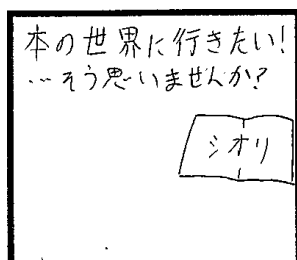 本の世界に行きたい!
…そう思いませんか?
シオリ